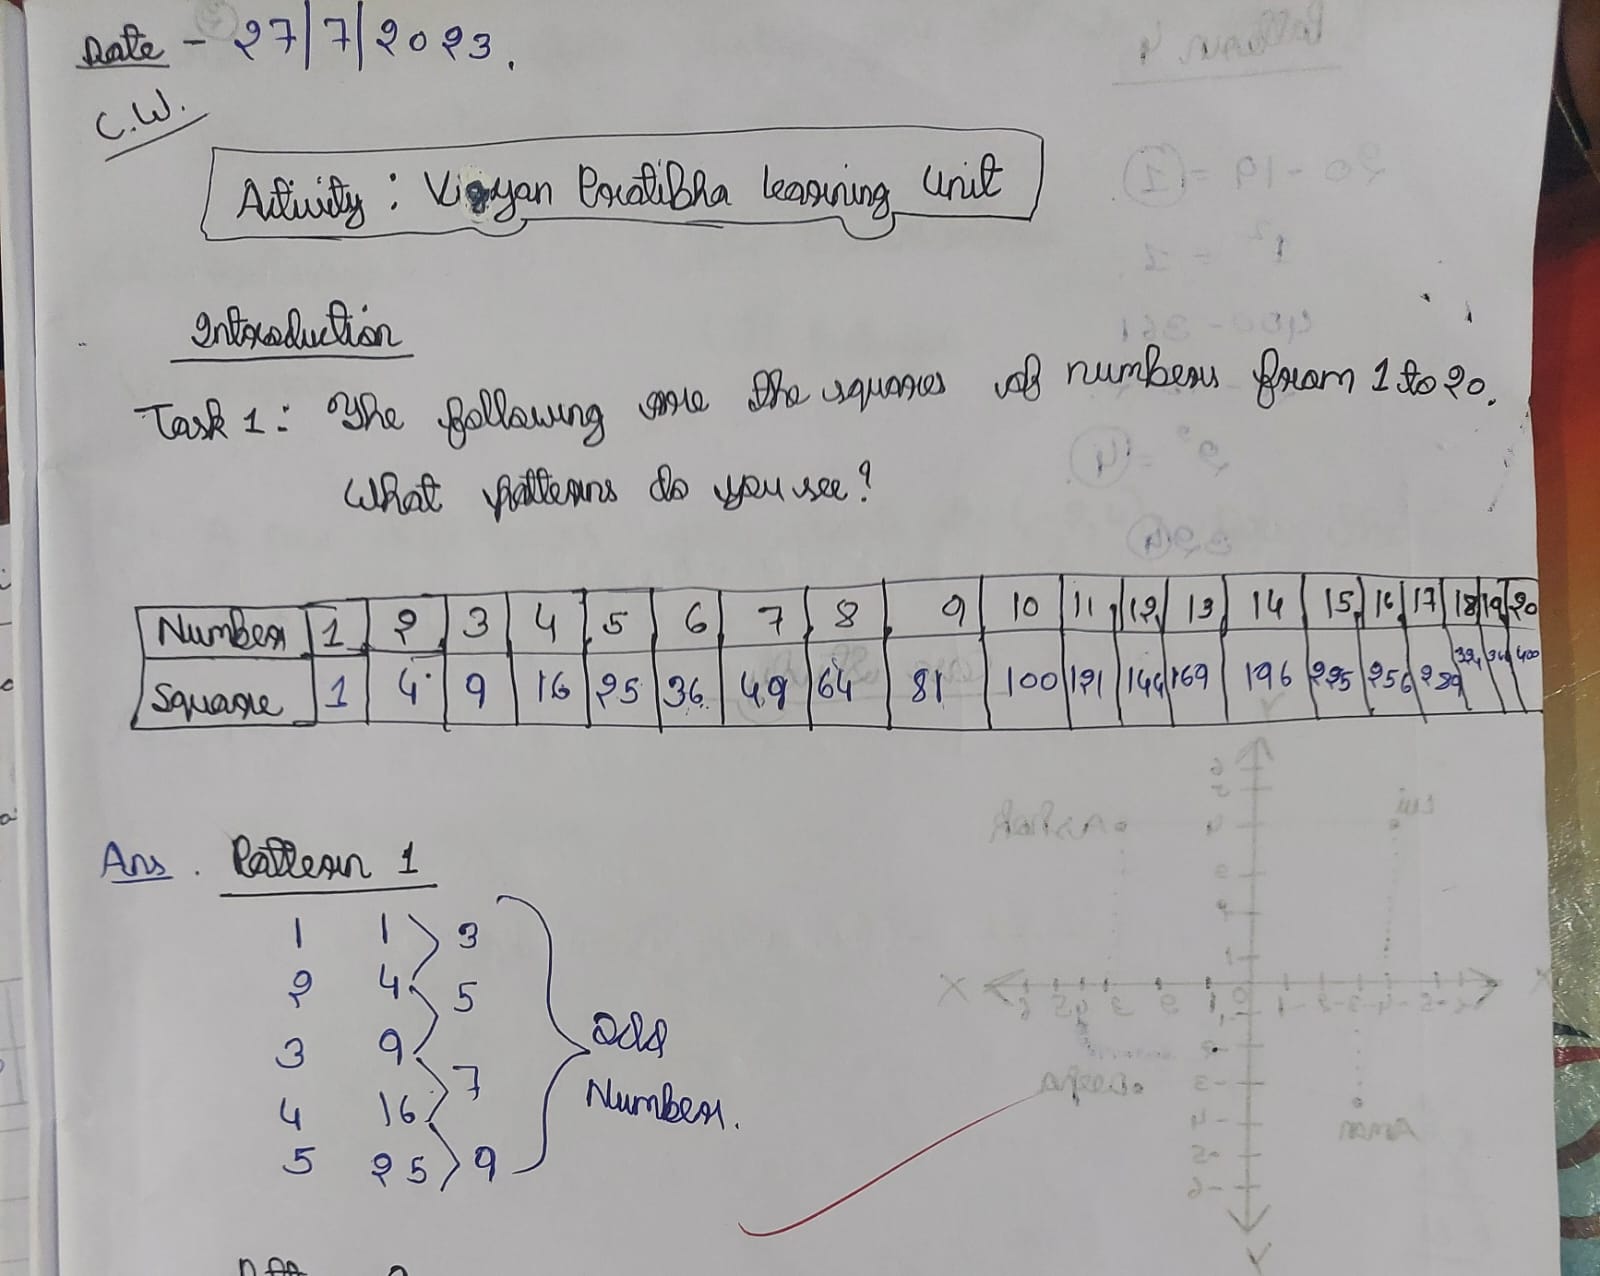 Date - 27/7/2023.
C.W.
Ativity : Vigyan Pratibha learning Unit
Introduction
Task 1: The following are the squares of numbers from 1 to 20.
What patterns do you see?
Number 1 2 3 4 5 6 7 8 9 10 11 12 13 14 15 16 17 18 19 20
Square 1 4 9 16 25 36 49 64 81 100 121 144 169 196 225 256 289 324 400
Ans. Pattern 1
1 1 3
2 4 5
3 9
4 16 7
5 25 9
Odd
Number.